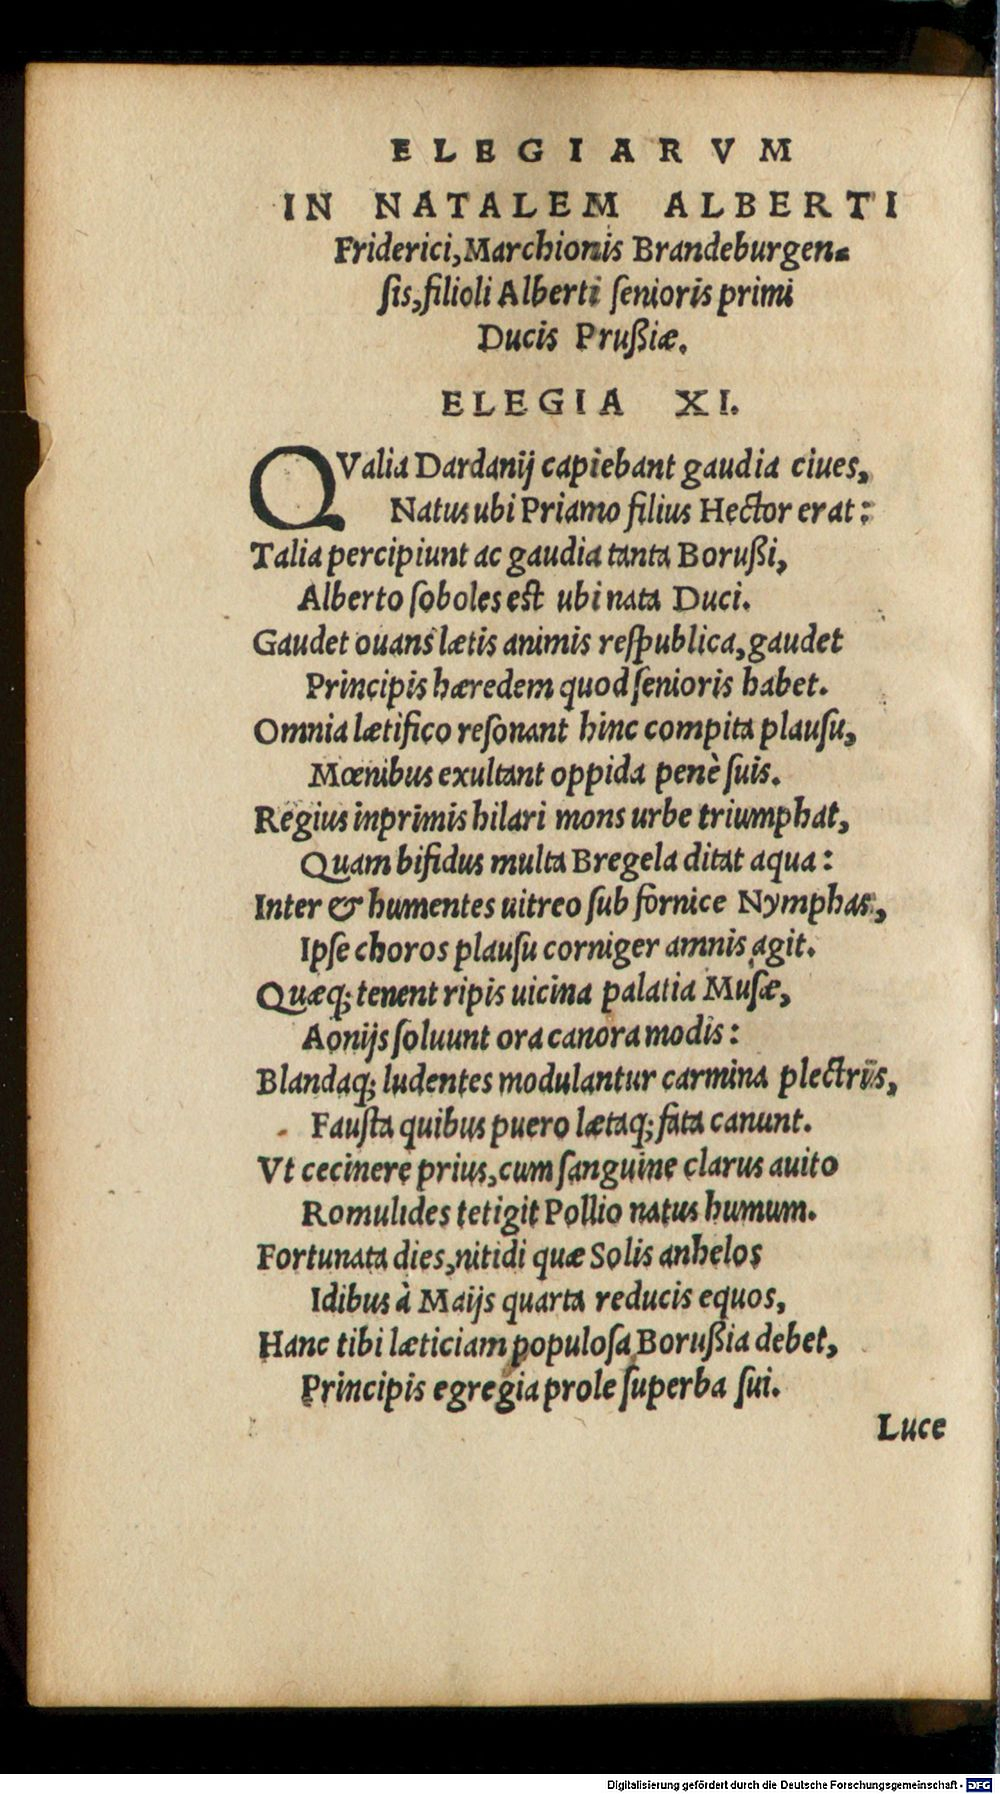 ELEGIARVM
IN NATALEM ALBERTI
Friderici, Marchionis Brandeburgen-
ſis, filioli Alberti ſenioris primi
Ducis Prußiæ.
ELEGIA XI.
QValia Dardanij capiebant gaudia ciues,
Natus ubi Priamo filius Hector erat:
Talia percipiunt ac gaudia tanta Borußi,
Alberto ſoboles est ubi nata Duci.
Gaudet ouans lætis animis reſpublica, gaudet
Principis hæredem quod ſenioris habet.
Omnia lætifico reſonant hinc compita plauſu,
Mœnibus exultant oppida penè ſuis.
Regius inprimis hilari mons urbe triumphat,
Quam bifidus multa Bregela ditat aqua:
Inter & humentes uitreo ſub fornice Nymphas,
Ipſe choros plauſu corniger amnis agit.
Quæq; tenent ripis uicina palatia Muſæ,
Aonijs ſoluunt ora canora modis:
Blandaq; ludentes modulantur carmina plectris,
Fauſta quibus puero lætaq; fata canunt.
Vt cecinere prius, cum ſanguine clarus auito
Romulides tetigit Pollio natus humum.
Fortunata dies, nitidi quæ Solis anhelos
Idibus à Maijs quarta reducis equos,
Hanc tibi læticiam populoſa Borußia debet,
Principis egregia prole ſuperba ſui.
Luce
Digitalisierung gefördert durch die Deutsche Forschungsgemeinschaft - DFG